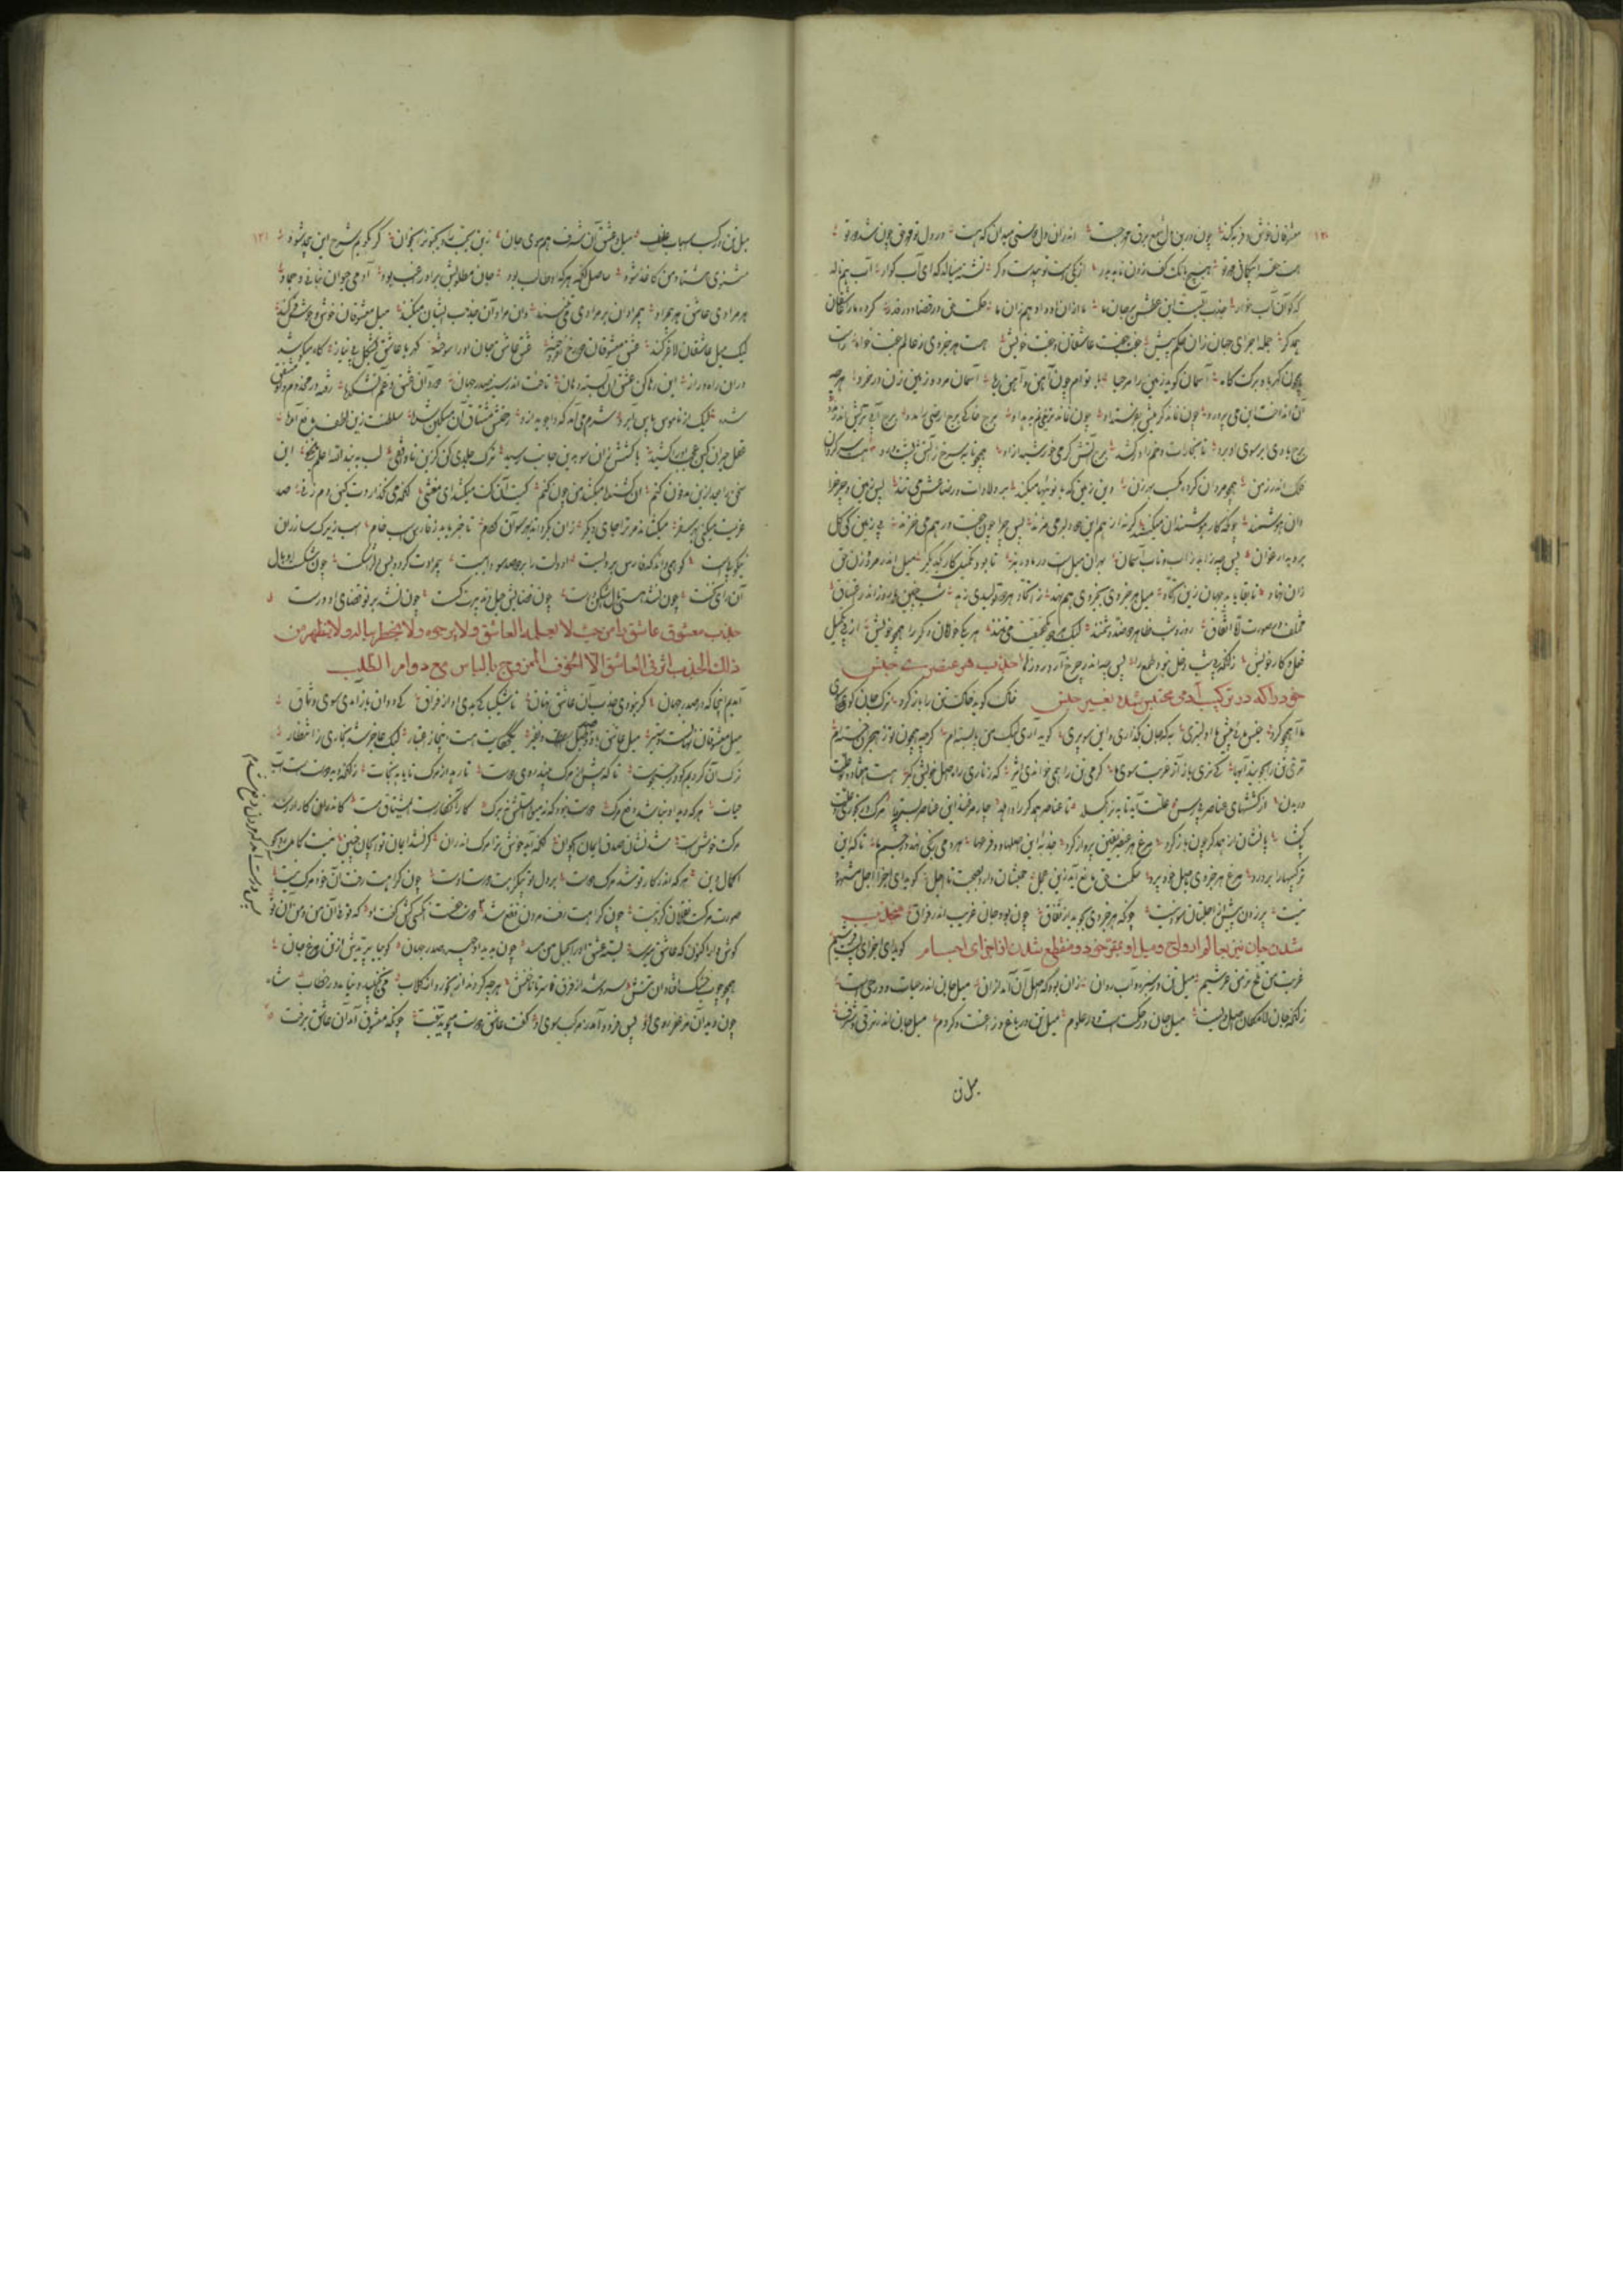 معشوقان خوش و فربه کند چون درین دل برق مهر دوست جست اندران دل دوستی میدان که هست در دل تو مهر حق چون شد دو تو
هست حق را بیگمانی مهر تو هیچ بانک کف زدن ناید بدر از یکی دست تو بی دست دکر تشنه مینالد که ای آب کوار آب هم نالد
که کو آن آب خوار جذب آبست این عطش در جان ما ما از آن او و او هم زان ما حکمت حق در قضا و در قدر کرد ما را عاشقان
همدکر جمله اجزای جهان زان حکم پیش جفت جفت و عاشقان جفت خویش هست هر جزوی ز عالم جفت خواه راست
همچون کهربا و برک کاه آسمان کوید زمین را مرحبا با توام چون آهن و آهن ربا آسمان مرد و زمین زن در خرد هر چه
آن انداخت این می پرورد چون نماند کرمیش بفرستد او چون نماند تری و نم بدهد او برج خاکی برج ارضی را مدد برج آبی تریش اندر دمد
برج بادی ابر سوی او برد تا بخارات وخم را در کشد برج آتش کرمی خورشید ازو همچو تابه سرخ ز آتش پشت و رو هست سرکردان
فلک اندر زمن همچو مردان کرد مکسب بهر زن وین زمین کدبانوئیها میکند بر ولادات و رضاعش می تند پس زمین و چرخ را
دان هوشمند چونکه کار هوشمندان میکنند کر نه از هم این دو دلبر می مزند پس چرا چون جفت در هم می خزند بی زمین کی کل
بروید ارغوان پس چه زاید ز آب و تاب آسمان بهر آن میل است در ماده بنر تا بود تکمیل کار یکدکر میل اندر مرد و زن حق
زان نهاد تا بقا یابد جهان زین اتحاد میل هر جزوی بجزوی هم نهد ز اتحاد هر دو تولیدی زهد شب چنین با روز اندر اعتناق
مختلف در صورت اما اتفاق روز و شب ظاهر دو ضد و دشمنند لیک هر دو یک حقیقت می تنند هر یکی خواهان دکر را همچو خویش از پی تکمیل
فعل و کار خویش زانکه بی شب دخل نبود طبع را پس چه اندر خرج آرد روزها جذب هر عنصری جنس
خود را که در ترکیب آدمی محتبس شده بغیر جنس خاک کوید خاک تن را باز کرد ترک جان کو سوی
ما آ همچو کرد جنس مائی پیش ما اولیتری به که زان تن وا بری کوید آری لیک من پابسته ام کرچه همچون تو ز هجران خسته ام
تری تن را بجویند آبها کای تری باز آ ز غربت سوی ما کرمی تن را همی خواند اثیر که ز ناری راه اصل خویش کیر هست هفتاد و دو علت
در بدن از کششهای عناصر بی رسن علت آید تا بدن را بکسلد تا عناصر همدکر را وا هلد چار مرغند این عناصر بسته پا مرک و رنجوری و علت
پاکشا پایشان از همدکر چون باز کرد مرغ هر عنصر یقین پرواز کرد جذبه این اصلها و فرعها هر دمی رنجی نهد در جسم ما تا که این
ترکیبها را بر درد مرغ هر جزوی باصل خود پرد حکمت حق مانع آید زین عجل جمعشان دارد بصحت تا اجل کوید ای اجزا اجل مشهود
نیست پر زدن پیش از اجلتان سود نیست چونکه هر جزوی بجوید ارتفاق چون بود جان غریب اندر فراق منجذب
شدن جان نیز بعالم ارواح و میل او بمقر خود و منقطع شدن از اجزای اجسام کوید ای اجزای پست فرشیم
غربت من تلخ تر من عرشیم میل تن در سبزه و آب روان زان بود که اصل آن آمد از آن میل جان اندر حیات و در حی است
زانکه جان لامکان اصل وی است میل جان در حکمت است و در علوم میل تن در باغ و راغ است و کروم میل جان اندر ترقی و شرف
میل تن
میل تن در کسب اسباب و علف میل و عشق آن شرف هم سوی جان زین یحب و یحبون را بخوان کر بکویم شرح این بیحد شود
مثنوی هشتاد من کاغذ شود حاصل آنکه هر که او طالب بود جان مطلوبش برو راغب بود آدمی حیوان نباتی و جماد
هر مرادی عاشق هر بی مراد بی مرادان بر مرادی می تنند وان مرادان جذب ایشان میکنند میل معشوقان خوش و خوش فر کند
لیک میل عاشقان لاغر کند عشق معشوقان دو رخ افروخته عشق عاشق جان او را سوخته کهربا عاشق بشکل بی نیاز کاه میکوشد
در آن راه دراز این رها کن عشق آن تشنه دهان تافت اندر سینه صدر جهان دود آن عشق و غم آتشکده رفته در مخدوم او مشفق
شده لیکش از ناموس و بوش و آب رو شرم می آمد که وا جوید ازو رحمتش مشتاق آن مسکین شده سلطنت زین لطف مانع آمده
عقل حیران کین عجب او را کشید یا کشش زان سو بدین جانب رسید ترک جلدی کن کزین ناواقفی لب ببند الله اعلم بالخفی این
سخن را بعد ازین مدفون کنم آن کشنده میکشد من چون کنم کیست آن کت میکشد ای معتنی آنکه می نکذاردت کین دم زنی صد
عزیمت میکنی بهر سفر میکشاند مر ترا جای دکر زان بکرداند بهر سو آن لکام تا خبر یابد ز فارس اسب خام اسب زیرکسار زان
نیکو پی است کو همی داند که فارس بر وی است او دلت را بر دو صد سودا ببست بی مرادت کرد پس دل را شکست چون شکست او بال
آن رای نخست چون نشد هستی بال اشکن درست چون قضایش حبل تدبیرت سکست چون نشد بر تو قضای او درست
جذب معشوق عاشق را من حیث لا یعلمه العاشق و لا یرجوه و لا یخطر بباله و لا یظهر من
ذلک الجذب اثر فی العاشق الا الخوف الممزوج بالیاس مع دوام الطلب
آمدیم اینجا که در صدر جهان کر نبودی جذب آن عاشق نهان ناشکیبا کی بدی او از فراق کی دوان باز آمدی سوی وثاق
میل معشوقان نهانست و ستیر میل عاشق با دو صد طبل و نفیر یک حکایت هست اینجا ز اعتبار لیک عاجز شد بخاری ز انتظار
ترک آن کردیم کو در جست و جوست تا که پیش از مرک بیند روی دوست تا رهد از مرک تا یابد نجات زانکه دید دوست است آب
حیات هر که دید او نباشد دفع مرک دوست نبود که نه میوه استش نه برک کار آن کار است ای مشتاق مست کاندر آن کار ار رسد
مرکت خوش است شد نشان صدق ایمان ای جوان آنکه آید خوش ترا مرک اندر آن کر نشد ایمان تو ای جان چنین نیست کامل رو بجو
اکمال دین هر که اندر کار تو شد مرک دوست بر دل تو بی کراهت دوست اوست چون کراهت رفت آن خود مرک نیست
صورت مرک است و نقلان کردنیست چون کراهت رفت مردن نفع شد دوست حق است و کسی کش کفت او که توئی آن من و من آن تو
کوش دار اکنون که عاشق میرسد بسته عشق او را بحبل من مسد چون بدید او چهره صدر جهان کوئیا پریدش از تن مرغ جان
همچو چوب خشک افتاد آن تنش سرد شد از فرق سر تا ناخنش هر چه کردند از بخور و از کلاب نی بجنبید و نیامد در خطاب شاه
چون دید آن مزعفر روی او پس فرود آمد ز مرکب سوی او کفت عاشق دوست میجوید بتفت چونکه معشوق آمد آن عاشق برفت